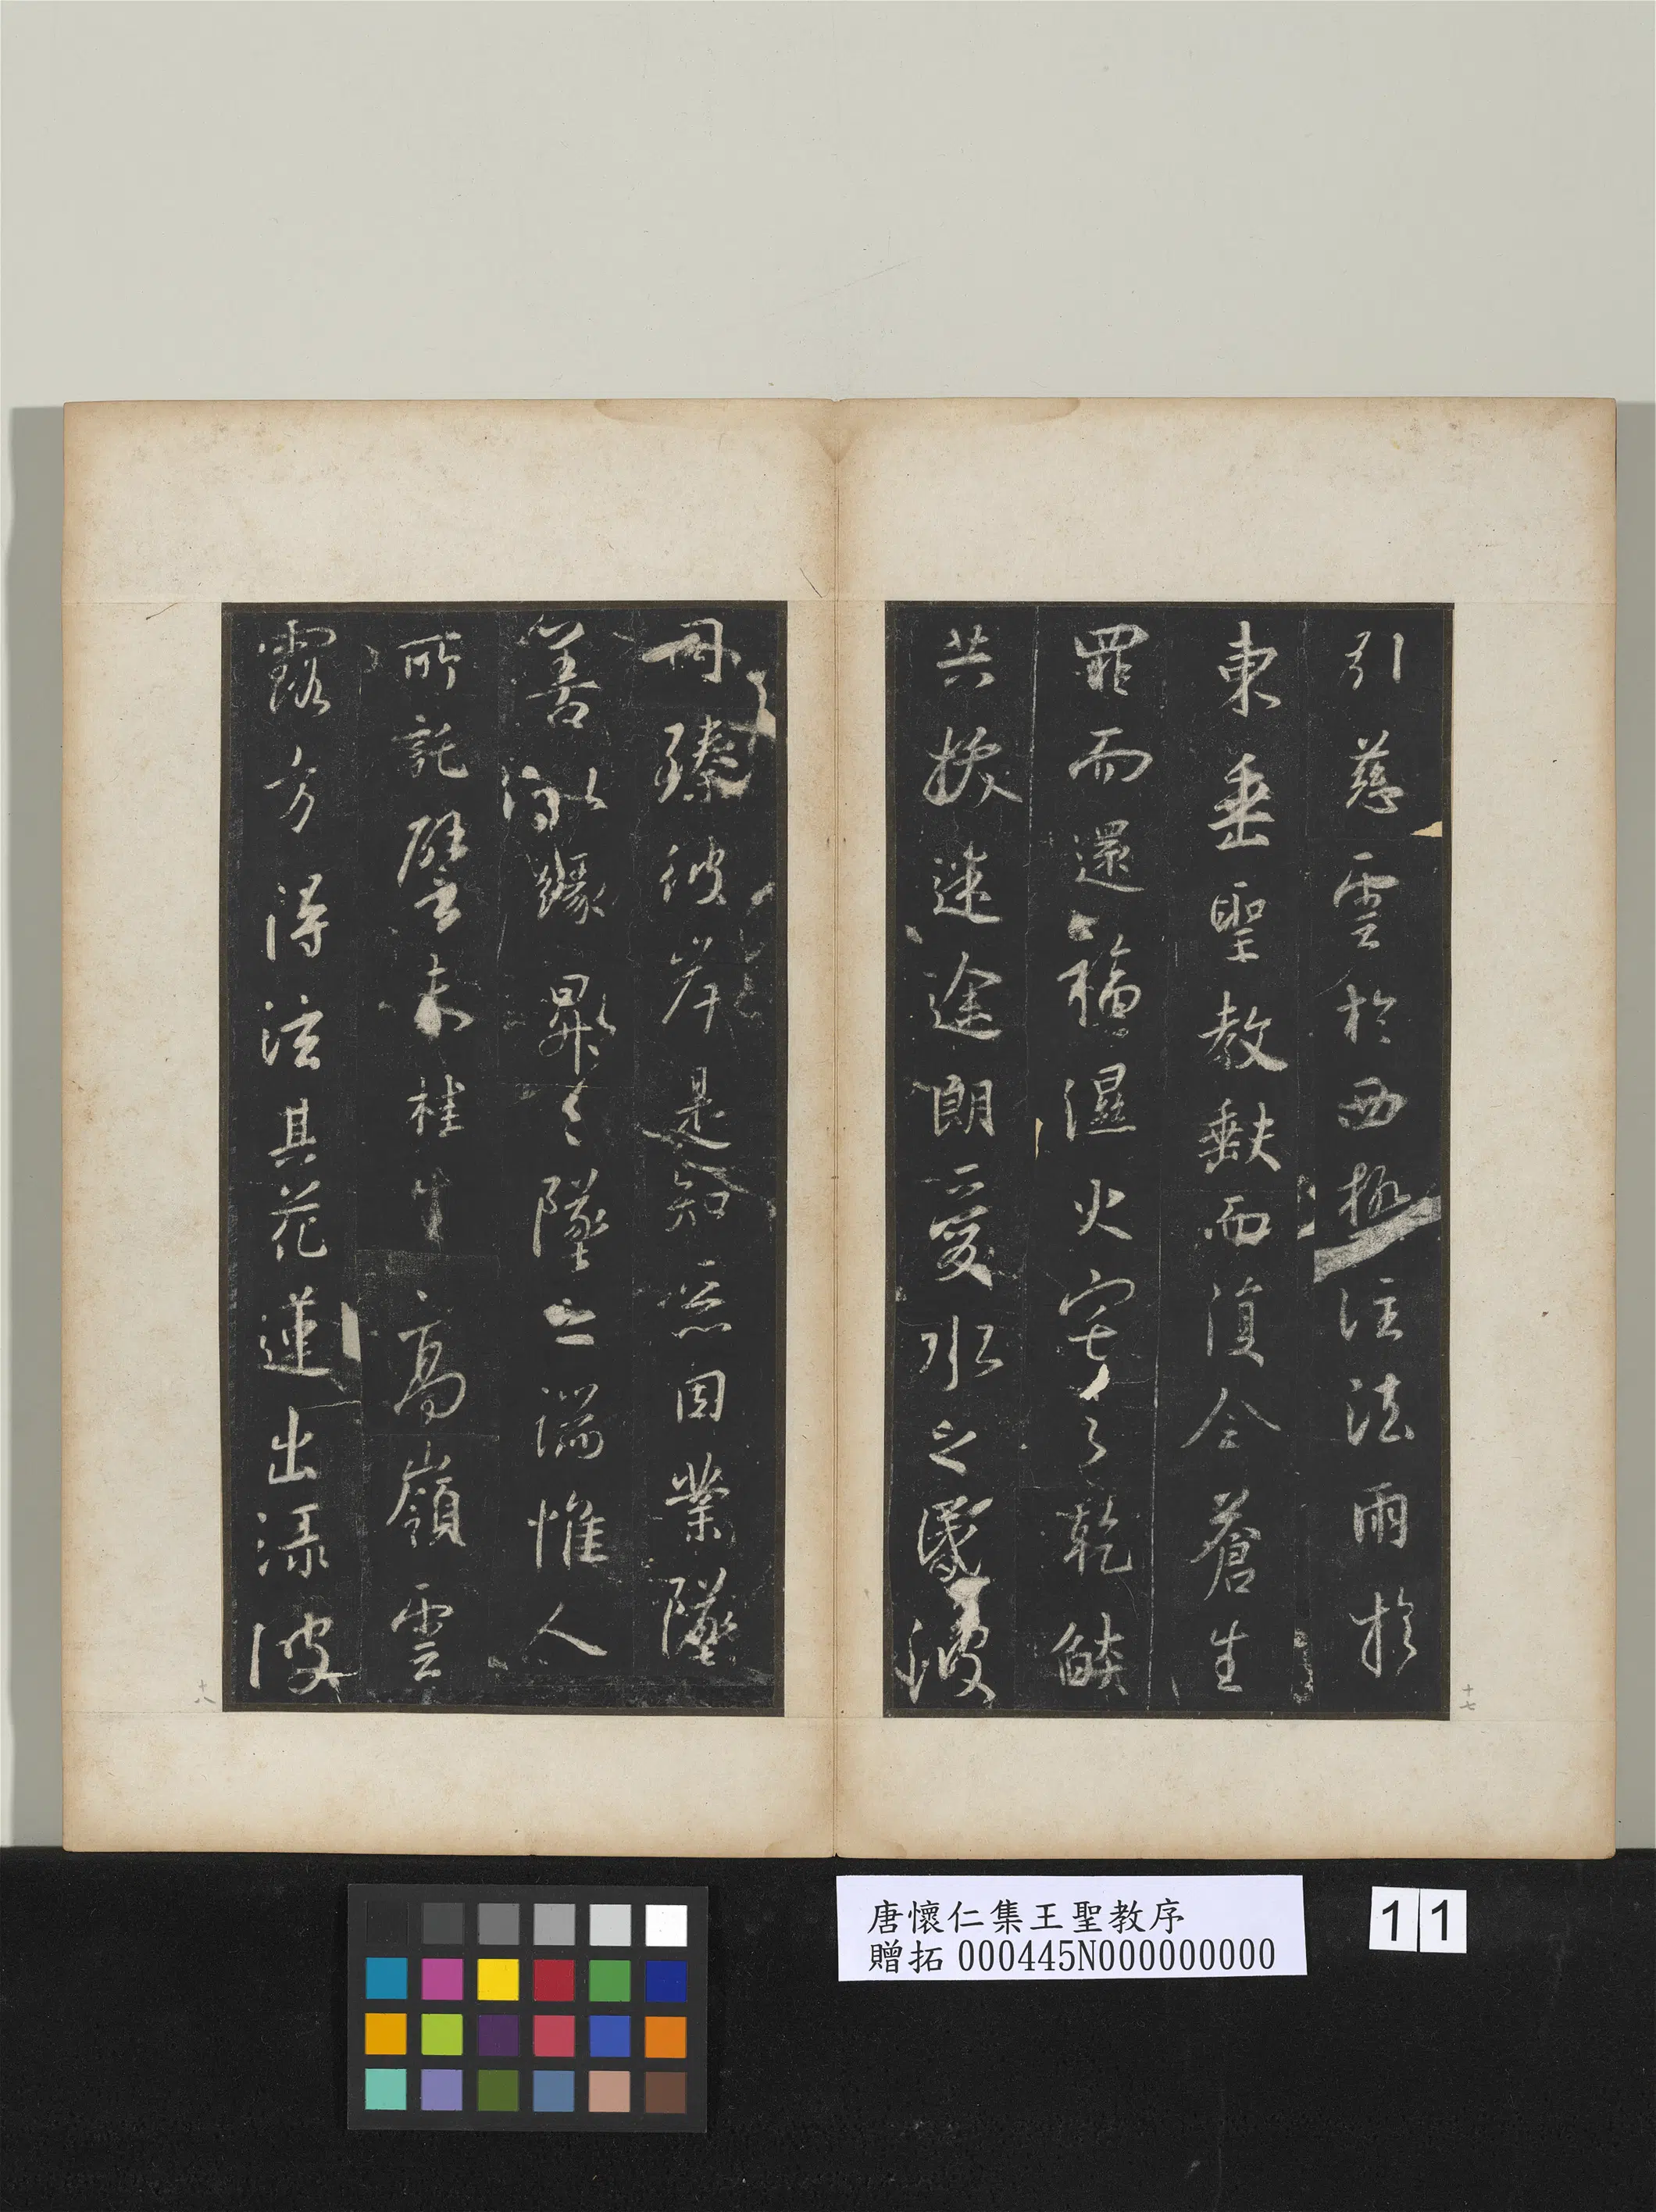 引慈雲於西極注法雨於
東垂聖教缺而復全蒼生
罪而還福濕火宅之乾焰
共拔迷途朗愛水之昏波
十七
同臻彼岸是知惡因業墜
善以緣昇昇墜之端惟人
所託譬夫桂生高嶺雲
露方得泫其花蓮出淥波
十八
唐懷仁集王聖教序
贈拓 000445N000000000
11